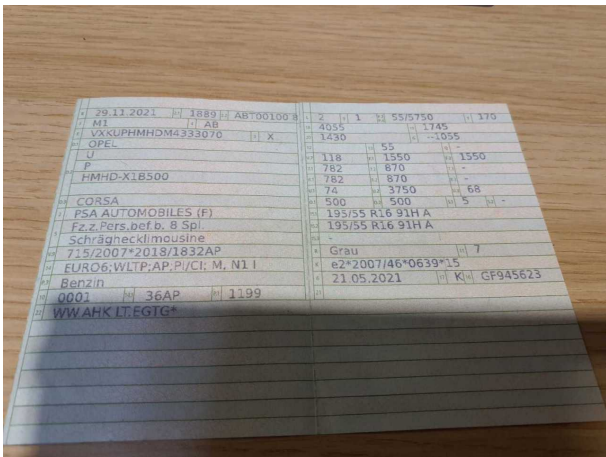 29.11.2021 1889 ABT00100 8
M1 AB
VXKUPHMHDM4333070 X
OPEL
U
P
HMHD-X1B500
CORSA
PSA AUTOMOBILES (F)
Fz.z.Pers.bef.b. 8 Spl.
Schräghecklimousine
715/2007*2018/1832AP
EURO6;WLTP;AP,PI/CI; M, N1 I
Benzin
0001 36AP 1199
WW.AHK LT.EGTG*
2 1 55/5750 170
4055 1745
1430 --1055
55 -
118 1550 1550
782 870 -
782 870 -
74 3750 68
500 500 5 -
195/55 R16 91H A
195/55 R16 91H A
-
Grau 7
e2*2007/46*0639*15
21.05.2021 K GF945623